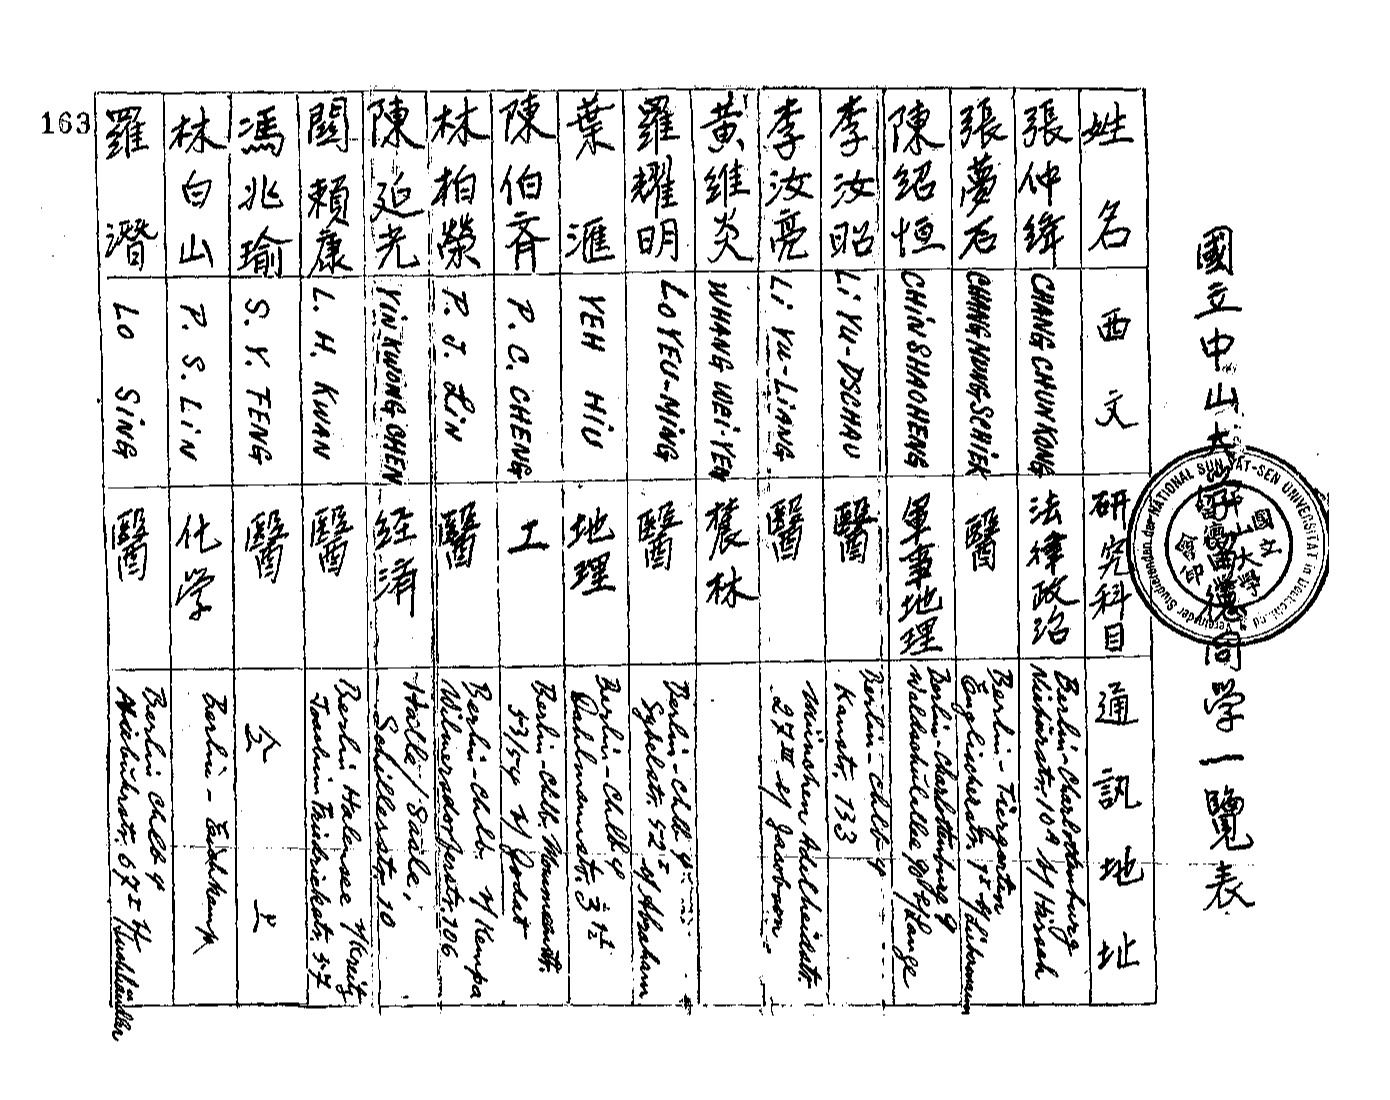 國立中山大學留德同學一覽表
Verein der Studierenden der NATIONAL SUN YAT-SEN UNIVERSITÄT in Deutschland
國立中山大學留德同學會印
姓名
西文
研究科目
通訊地址
張仲絳
CHANG CHUN KONG
法律政治
Berlin-Charlottenburg
Niebuhrstr. 10A b/ Hirsch
張夢石
CHANG MUNG SCHIEK
醫
Berlin-Tiergarten
Englischerstr. b/ Liebermann
陳紹恒
CHIN SHAO HENG
軍事地理
Berlin-Charlottenburg 9
Waldschulallee b/ Lange
李汝昭
Li YU-DSCHAU
醫
Berlin-Chlb 4
Kantstr. 133
李汝亮
Li YU-LiANG
醫
München Adelheidstr.
27 III b/ Jacobson
黃維炎
WHANG WEI-YEN
農林
羅耀明
LO YEU-MiNG
醫
Berlin-Chlb 4
Sybelstr. 52 I b/ Abraham
葉滙
YEH HIU
地理
Berlin-Chlb 4
Dahlmannstr. 3
陳伯齊
P. C. CHENG
工
Berlin-Chlb. Mommsenstr.
53/54 b/ Jodat
林柏榮
P. J. LiN
醫
Berlin-Chlb. b/ Kempa
Wilmersdorferstr. 106
陳延光
YiN KWONG CHEN
經濟
Halle/Saale,
Schillerstr. 10
關賴康
L. H. KWAN
醫
Berlin Halensee b/ Kreity
Joachim Friedrichstr. 57
馮兆瑜
S. Y. FENG
醫
仝上
林白山
P. S. LiN
化学
Berlin-Eichkamp
羅潛
LO SiNG
醫
Berlin Chlb 4
Niebuhrstr. 67 I b/
163